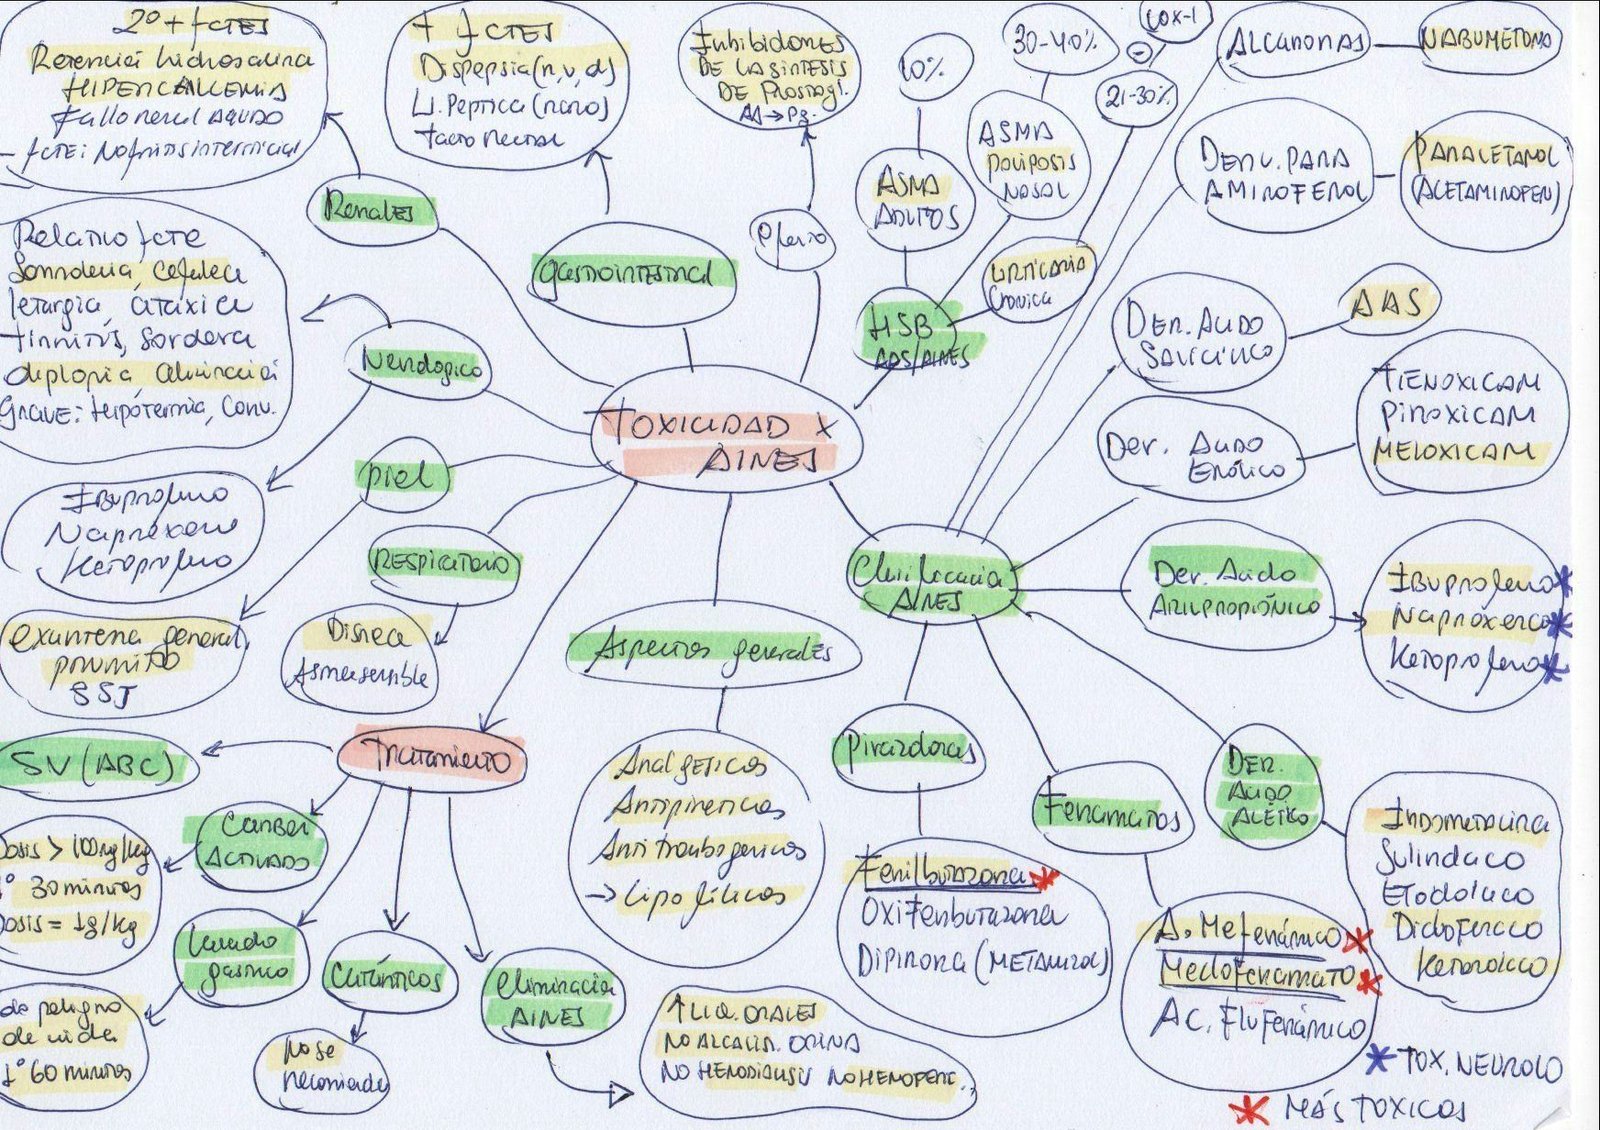 2º + fCTES
Retención hidrosalina
HIPERCALLEMIA
Fallo renal AGUDO
- fCTE: Nefritis intersticial
Renales
+ fCTES
Dispepsia (n, v, d)
U. Peptica (raro)
tacto rectal
Gastrointestinal
Inhibidores
DE LA SINTESIS
DE Prostagl.
AA → Pg.
Efecto
10%
ASMA
ADULTOS
HSB
AAS/AINES
30-40%
ASMA
POLIPOSIS
NASAL
COX-1
-
21-30%
URTICARIA
Cronica
ALCANONAS
NABUMETONA
DERIV. PARA
AMINOFENOL
PARACETAMOL
(ACETAMINOFEN)
DER. ACIDO
SALICILICO
AAS
Der. Acido
Enólico
TENOXICAM
PIROXICAM
MELOXICAM
Relativo fcte
Somnolencia, Cefalea
letargia, ataxia
tinnitus, Sordera
diplopia alucinación
GRAVE: Hipotermia, Conv.
Neurologico
Ibuprofeno
Naproxeno
Ketoprofeno
piel
exantema general,
prurito
SSJ
RESPIRATORIO
Disnea
Asma sensible
TOXICIDAD X
AINES
Aspectos generales
Analgesicos
Antipireticos
Antitrombogenicos
→ Lipofílicos
Clasificación
AINES
Der. Acido
ARILPROPIÓNICO
Ibuprofeno *
Naproxeno *
Ketoprofeno *
Pirazolonas
Fenilbutazona *
Oxifenbutazona
Dipirona (METAMIZOL)
Fenamatos
A. Mefenámico *
Meclofenamato *
Ac. Flufenámico
DER.
ACIDO
ACÉTICO
Indometacina
Sulindaco
Etodolaco
Diclofenaco
Ketorolaco
Tratamiento
SV (ABC)
CARBON
ACTIVADO
Dosis > 100mg/kg
1º 30 minutos
Dosis = 1g/kg
Lavado
gastrico
de peligro
de vida
1º 60 minutos
Catárticos
No se
recomienda
Eliminación
AINES
↑ LIQ. ORALES
NO ALCALIN. ORINA
NO HEMODIALISIS NO HEMOPERF..
* TOX. NEUROLO
* MÁS TOXICOS